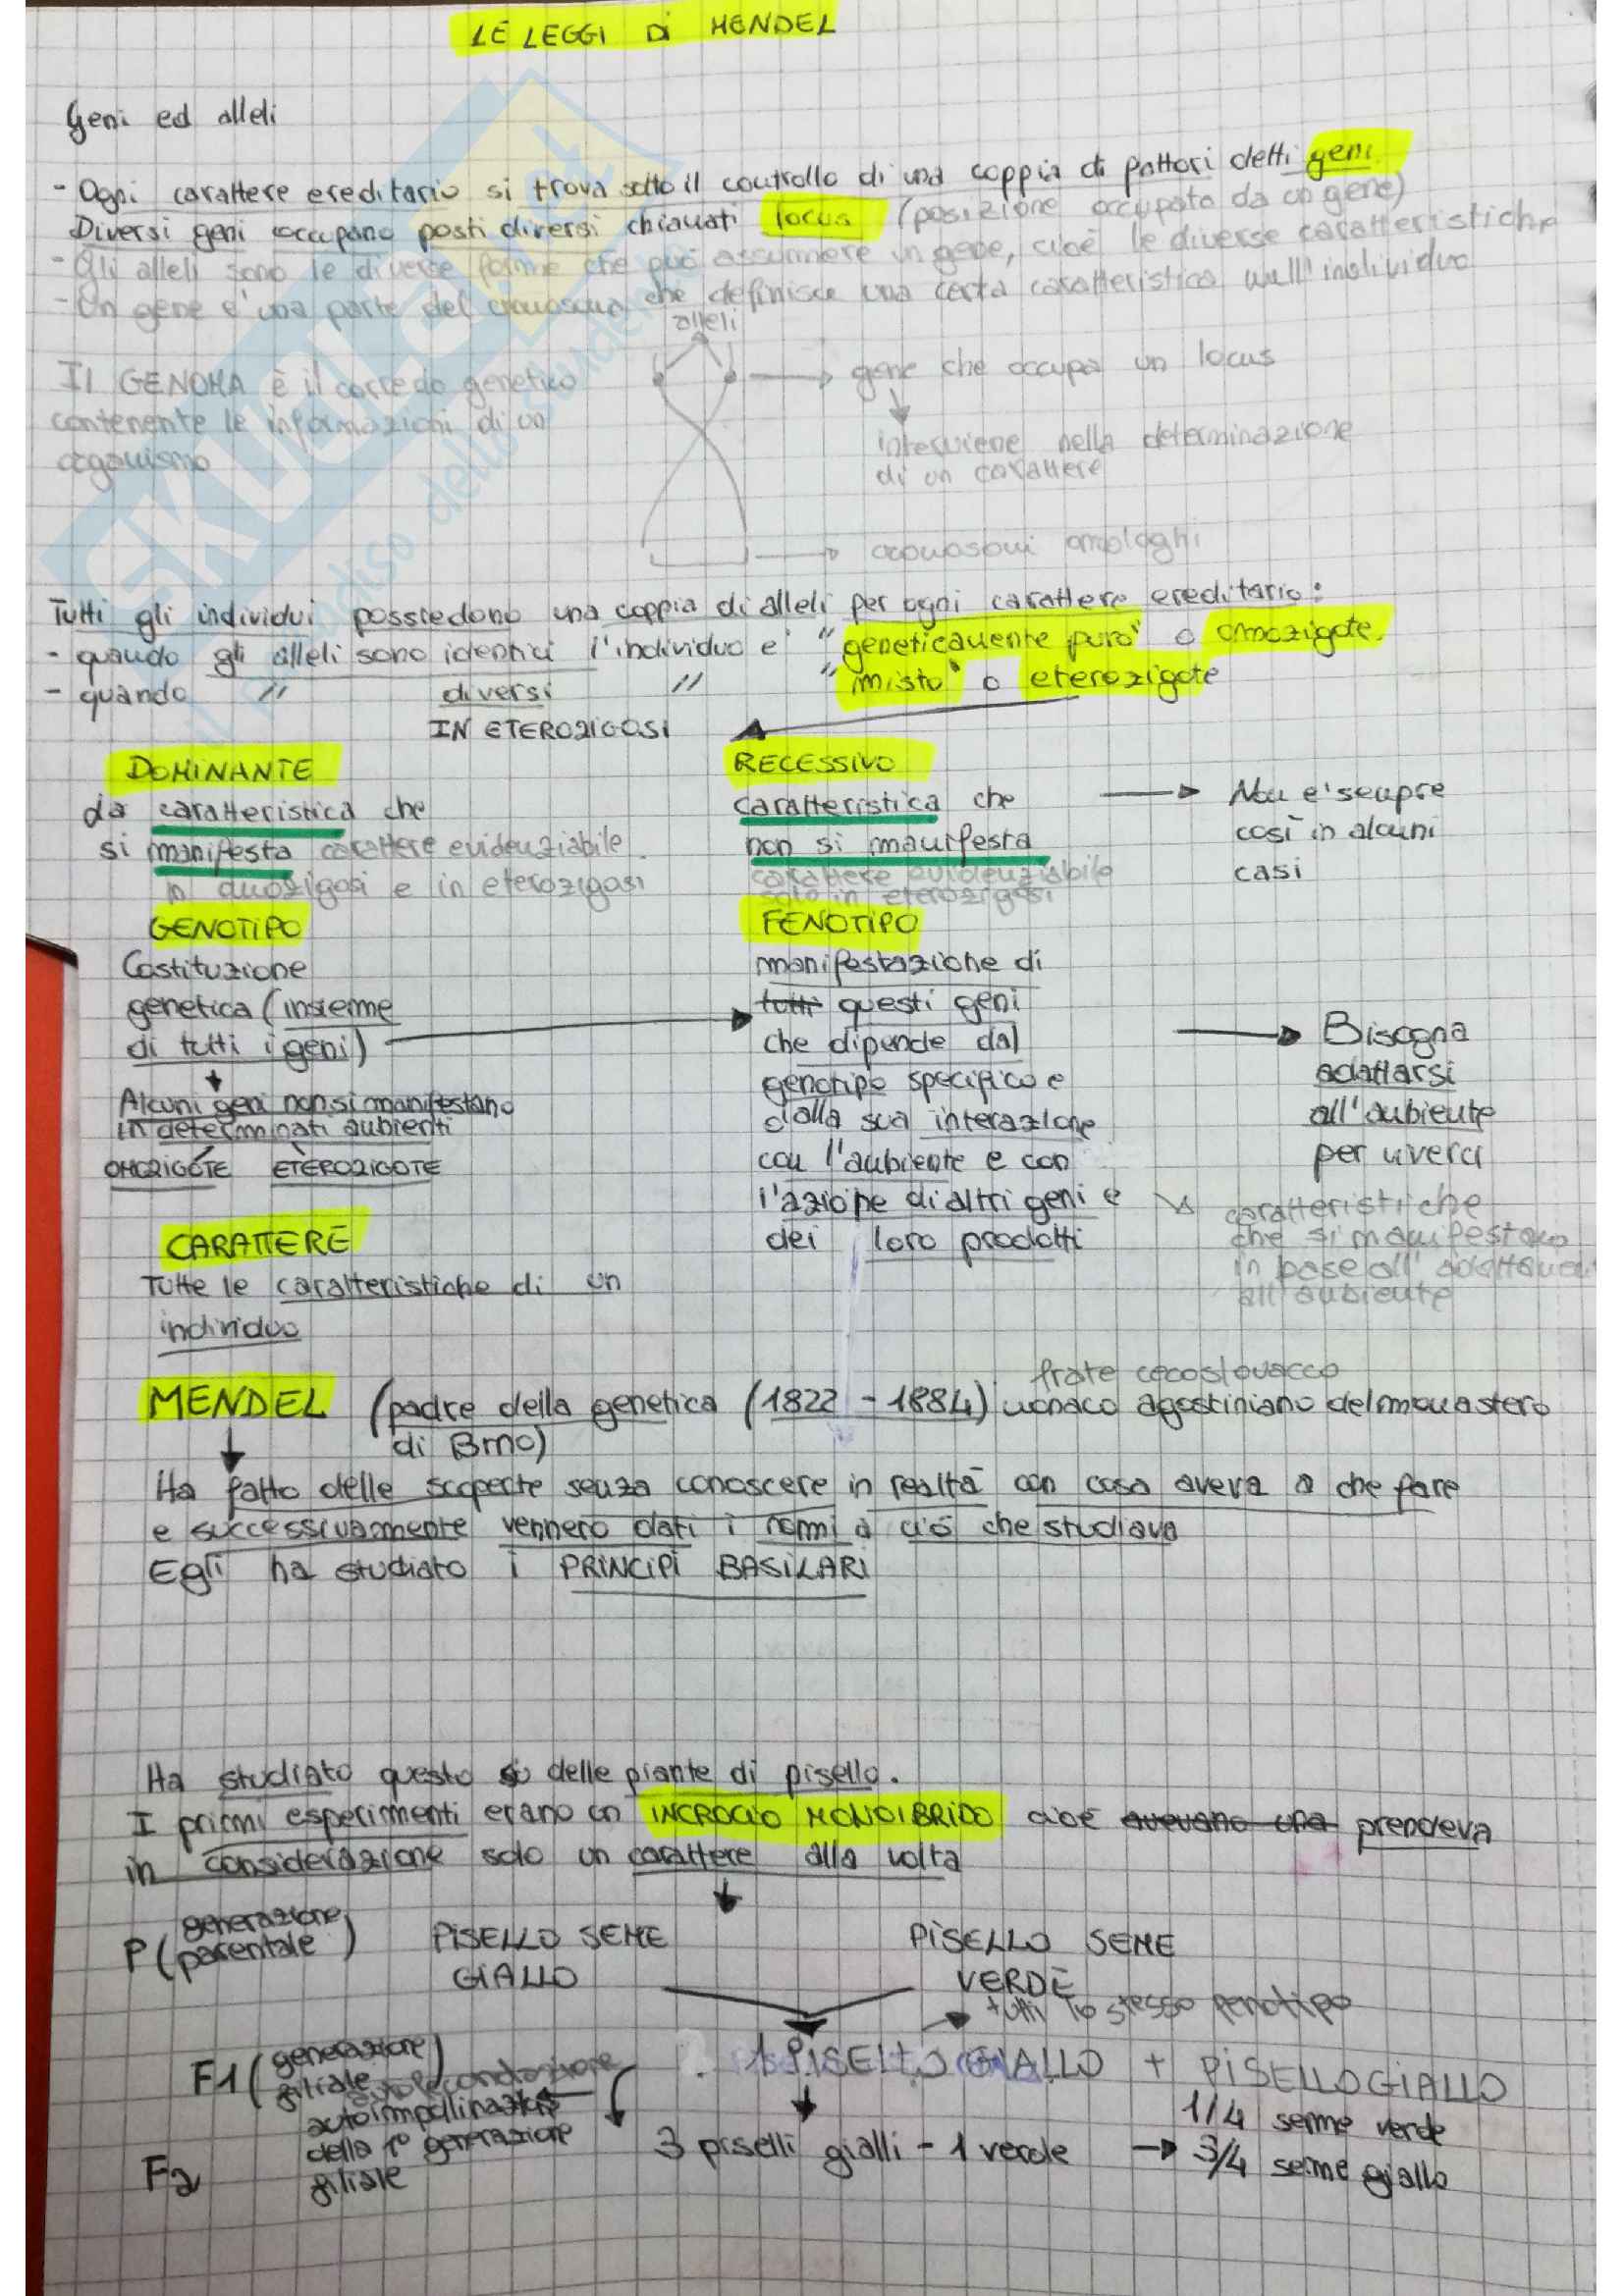 LE LEGGI Di MENDEL
Geni ed alleli
- Ogni carattere ereditario si trova sotto il controllo di una coppia di fattori detti geni.
Diversi geni occupano posti diversi chiamati locus (posizione occupata da un gene)
- Gli alleli sono le diverse forme che può assumere un gene, cioè le diverse caratteristiche
- Un gene e' una parte del cromosoma che definisce una certa caratteristica nell'individuo
alleli
Il GENOMA è il corredo genetico
contenente le informazioni di un
organismo
gene che occupa un locus
interviene nella determinazione
di un carattere
cromosomi omologhi
Tutti gli individui possiedono una coppia di alleli per ogni carattere ereditario:
- quando gli alleli sono identici l'individuo e' "geneticamente puro" o omozigote.
- quando " diversi " "misto" o eterozigote
IN ETEROZIGOSI
DOMINANTE
da caratteristica che
si manifesta carattere evidenziabile
in omozigosi e in eterozigosi
RECESSIVO
caratteristica che
non si manifesta
carattere evidenziabile
solo in eterozigosi
Non e' sempre
così in alcuni
casi
GENOTIPO
Costituzione
genetica (insieme
di tutti i geni)
Alcuni geni non si manifestano
in determinati ambienti
OMOZIGOTE ETEROZIGOTE
FENOTIPO
manifestazione di
tutti questi geni
che dipende dal
genotipo specifico e
dalla sua interazione
con l'ambiente e con
l'azione di altri geni e
dei loro prodotti
Bisogna
adattarsi
all'ambiente
per viverci
caratteristiche
che si manifestano
in base all'
all'ambiente
CARATTERE
Tutte le caratteristiche di un
individuo
frate cecoslovacco
MENDEL (padre della genetica (1822 - 1884) monaco agostiniano del monastero
di Brno)
Ha fatto delle scoperte senza conoscere in realtà con cosa aveva a che fare
e successivamente vennero dati i nomi a ciò che studiava
Egli ha studiato i PRINCIPI BASILARI
Ha studiato questo su delle piante di pisello.
I primi esperimenti erano un INCROCIO MONOIBRIDO cioè avevano una prendeva
in considerazione solo un carattere alla volta
P (generazione
parentale)
PISELLO SEME
GIALLO
PISELLO SEME
VERDE
tutti lo stesso fenotipo
F1 (generazione
filiale)
1 PISELLO GIALLO + PISELLO GIALLO
autoimpollinazione
della 1° generazione
filiale
F2
3 piselli gialli - 1 verde
1/4 seme verde
3/4 seme giallo
SKUOLA.net